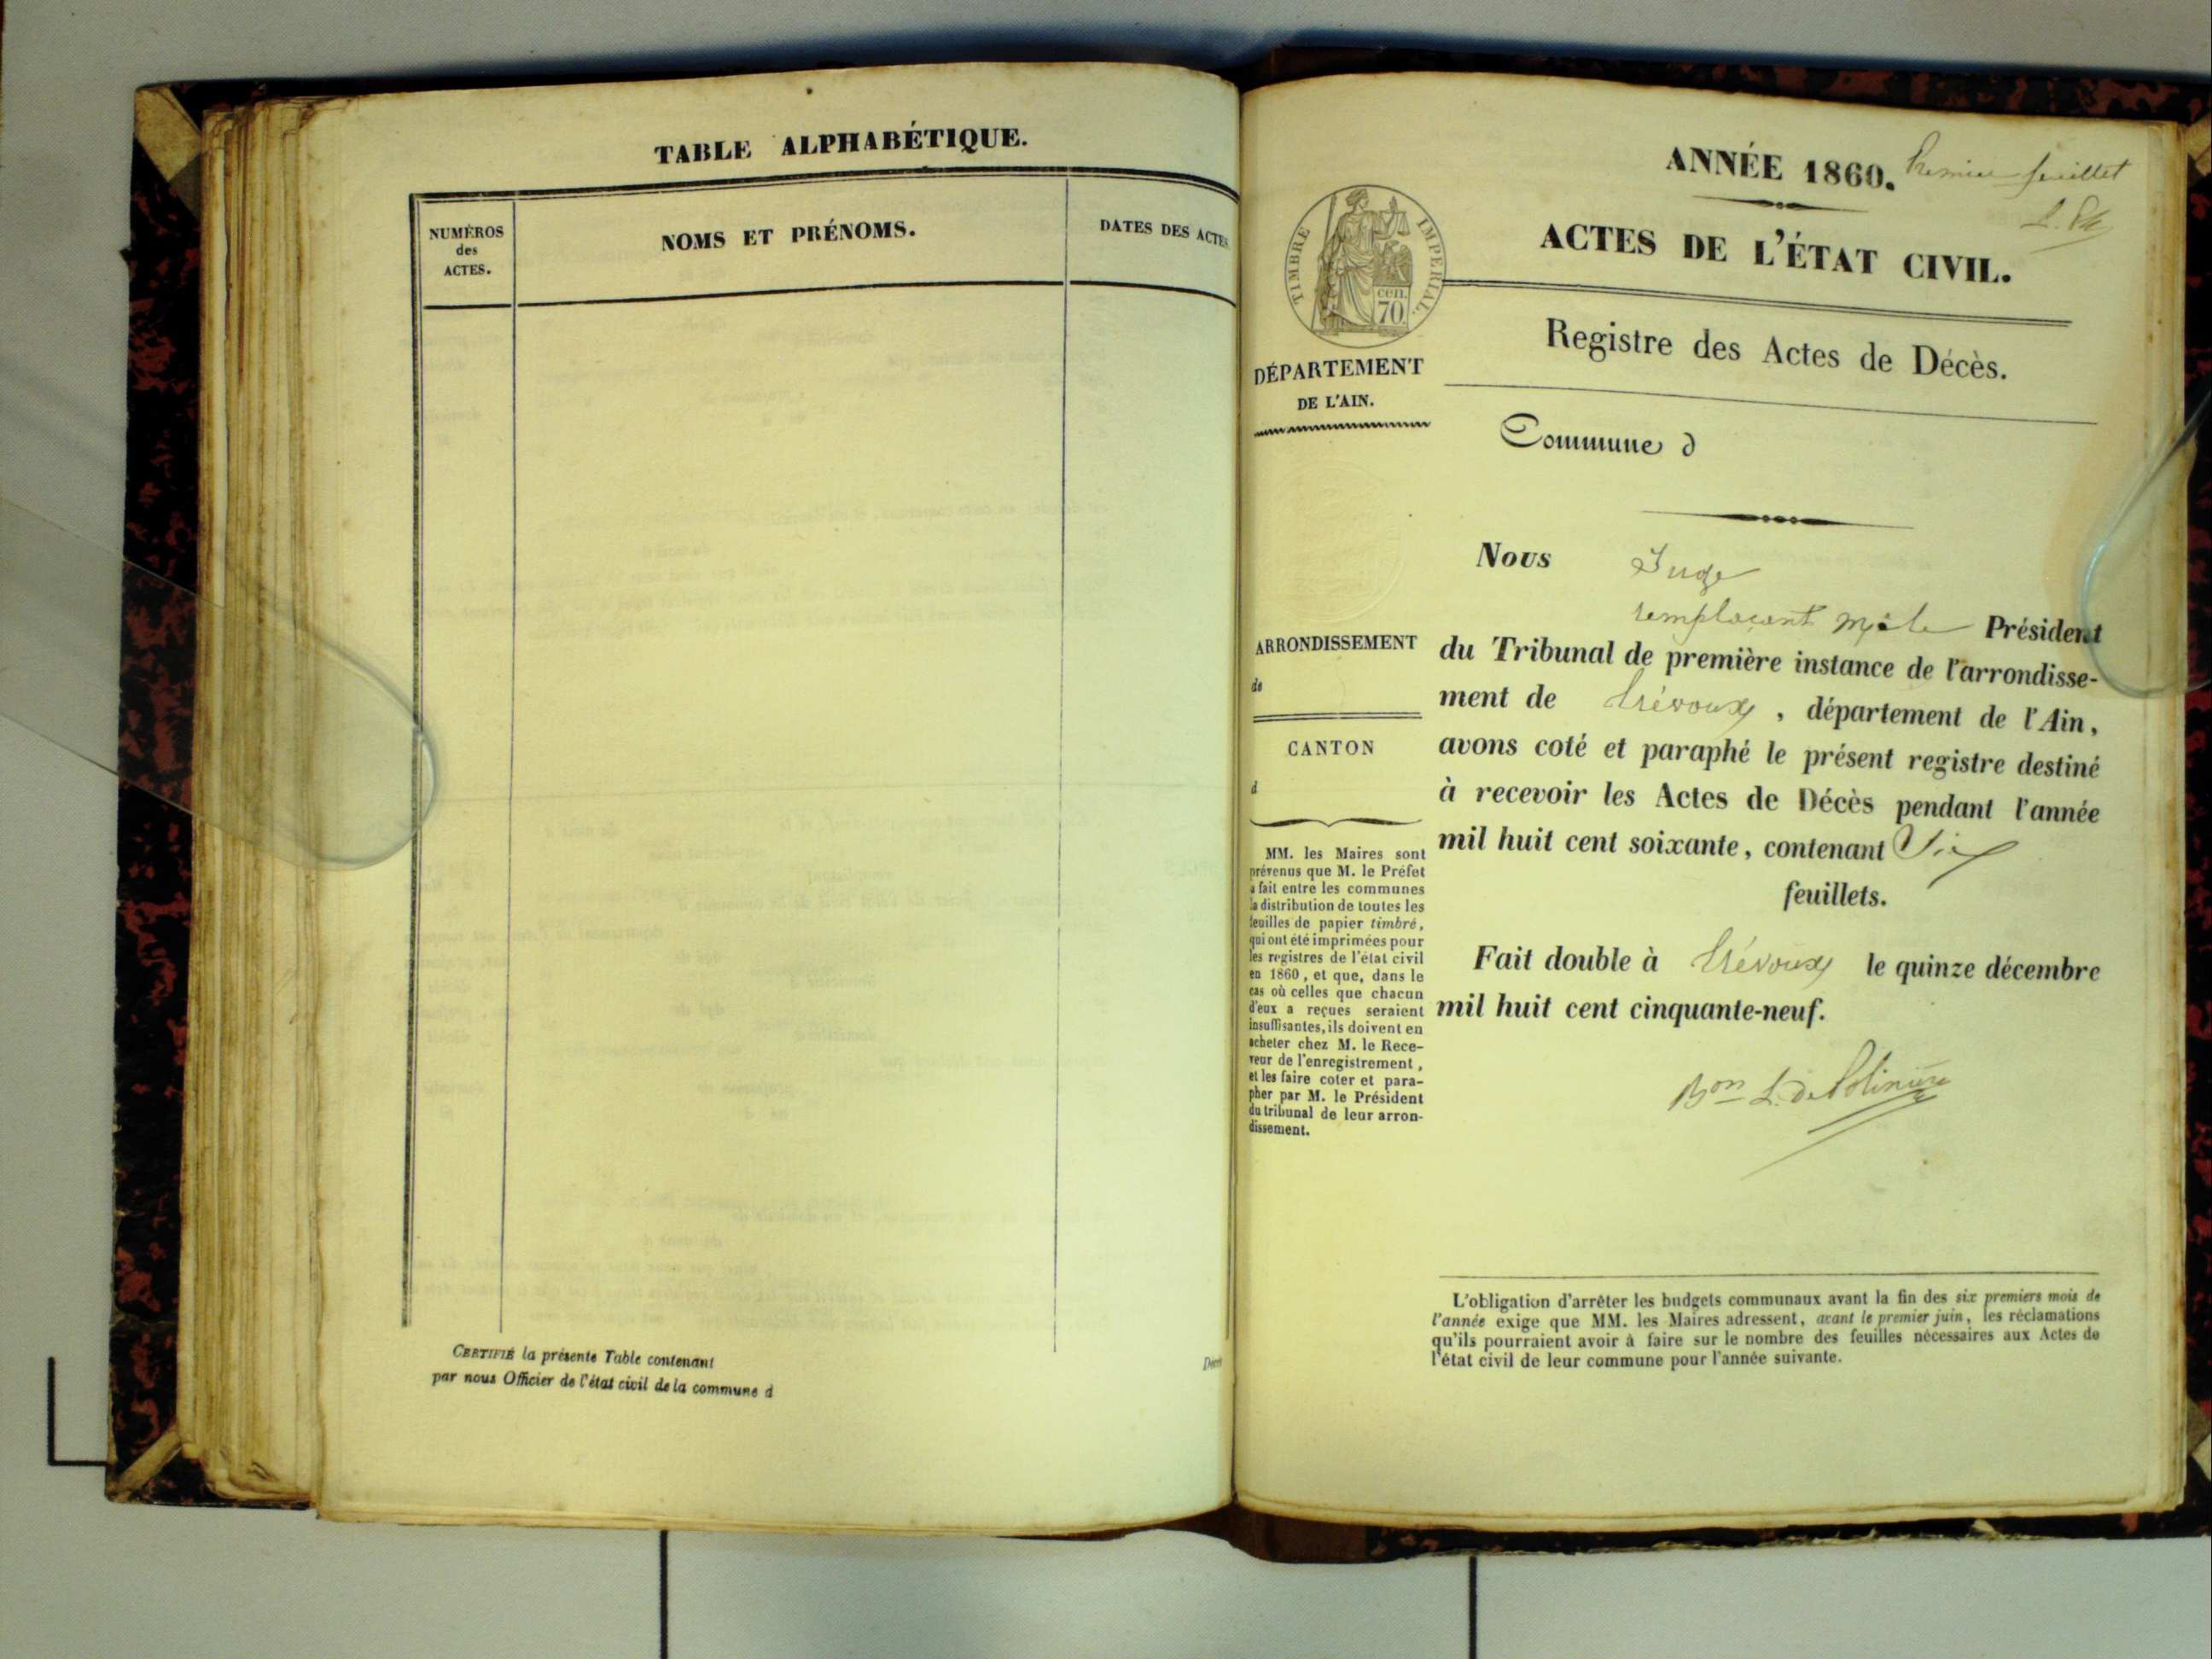 TABLE ALPHABÉTIQUE.
NUMÉROS
des
ACTES.
NOMS ET PRÉNOMS.
DATES DES ACTES
CERTIFIÉ la présente Table contenant
par nous Officier de l'état civil de la commune d
ANNÉE 1860. Premier feuillet
ACTES DE L'ÉTAT CIVIL.
TIMBRE IMPERIAL.
cen.
70.
DÉPARTEMENT
DE L'AIN.
Registre des Actes de Décès.
Commune d
Nous Juge
remplaçant Président
ARRONDISSEMENT
de
CANTON
d
du Tribunal de première instance de l'arrondisse-
ment de Trévoux, département de l'Ain,
avons coté et paraphé le présent registre destiné
à recevoir les Actes de Décès pendant l'année
mil huit cent soixante, contenant Six
feuillets.
Fait double à Trévoux le quinze décembre
mil huit cent cinquante-neuf.
Bon L. de Polinière
MM. les Maires sont
prévenus que M. le Préfet
a fait entre les communes
la distribution de toutes les
feuilles de papier timbré,
qui ont été imprimées pour
les registres de l'état civil
en 1860, et que, dans le
cas où celles que chacun
d'eux a reçues seraient
insuffisantes, ils doivent en
acheter chez M. le Rece-
veur de l'enregistrement,
et les faire coter et para-
pher par M. le Président
du tribunal de leur arron-
dissement.
L'obligation d'arrêter les budgets communaux avant la fin des six premiers mois de
l'année exige que MM. les Maires adressent, avant le premier juin, les réclamations
qu'ils pourraient avoir à faire sur le nombre des feuilles nécessaires aux Actes de
l'état civil de leur commune pour l'année suivante.